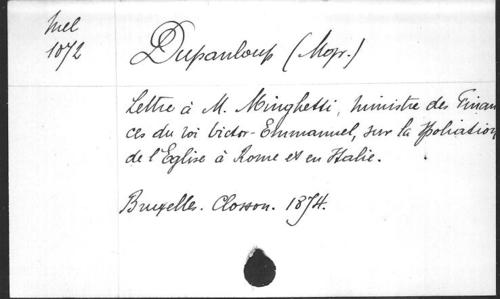 Mel
1072
Dupanloup (Mgr.)
Lettre à M. Minghetti, ministre des Finan
ces du roi Victor-Emmanuel, sur la spoliation
de l'Eglise à Rome et en Italie.
Bruxelles. Closson. 1874.